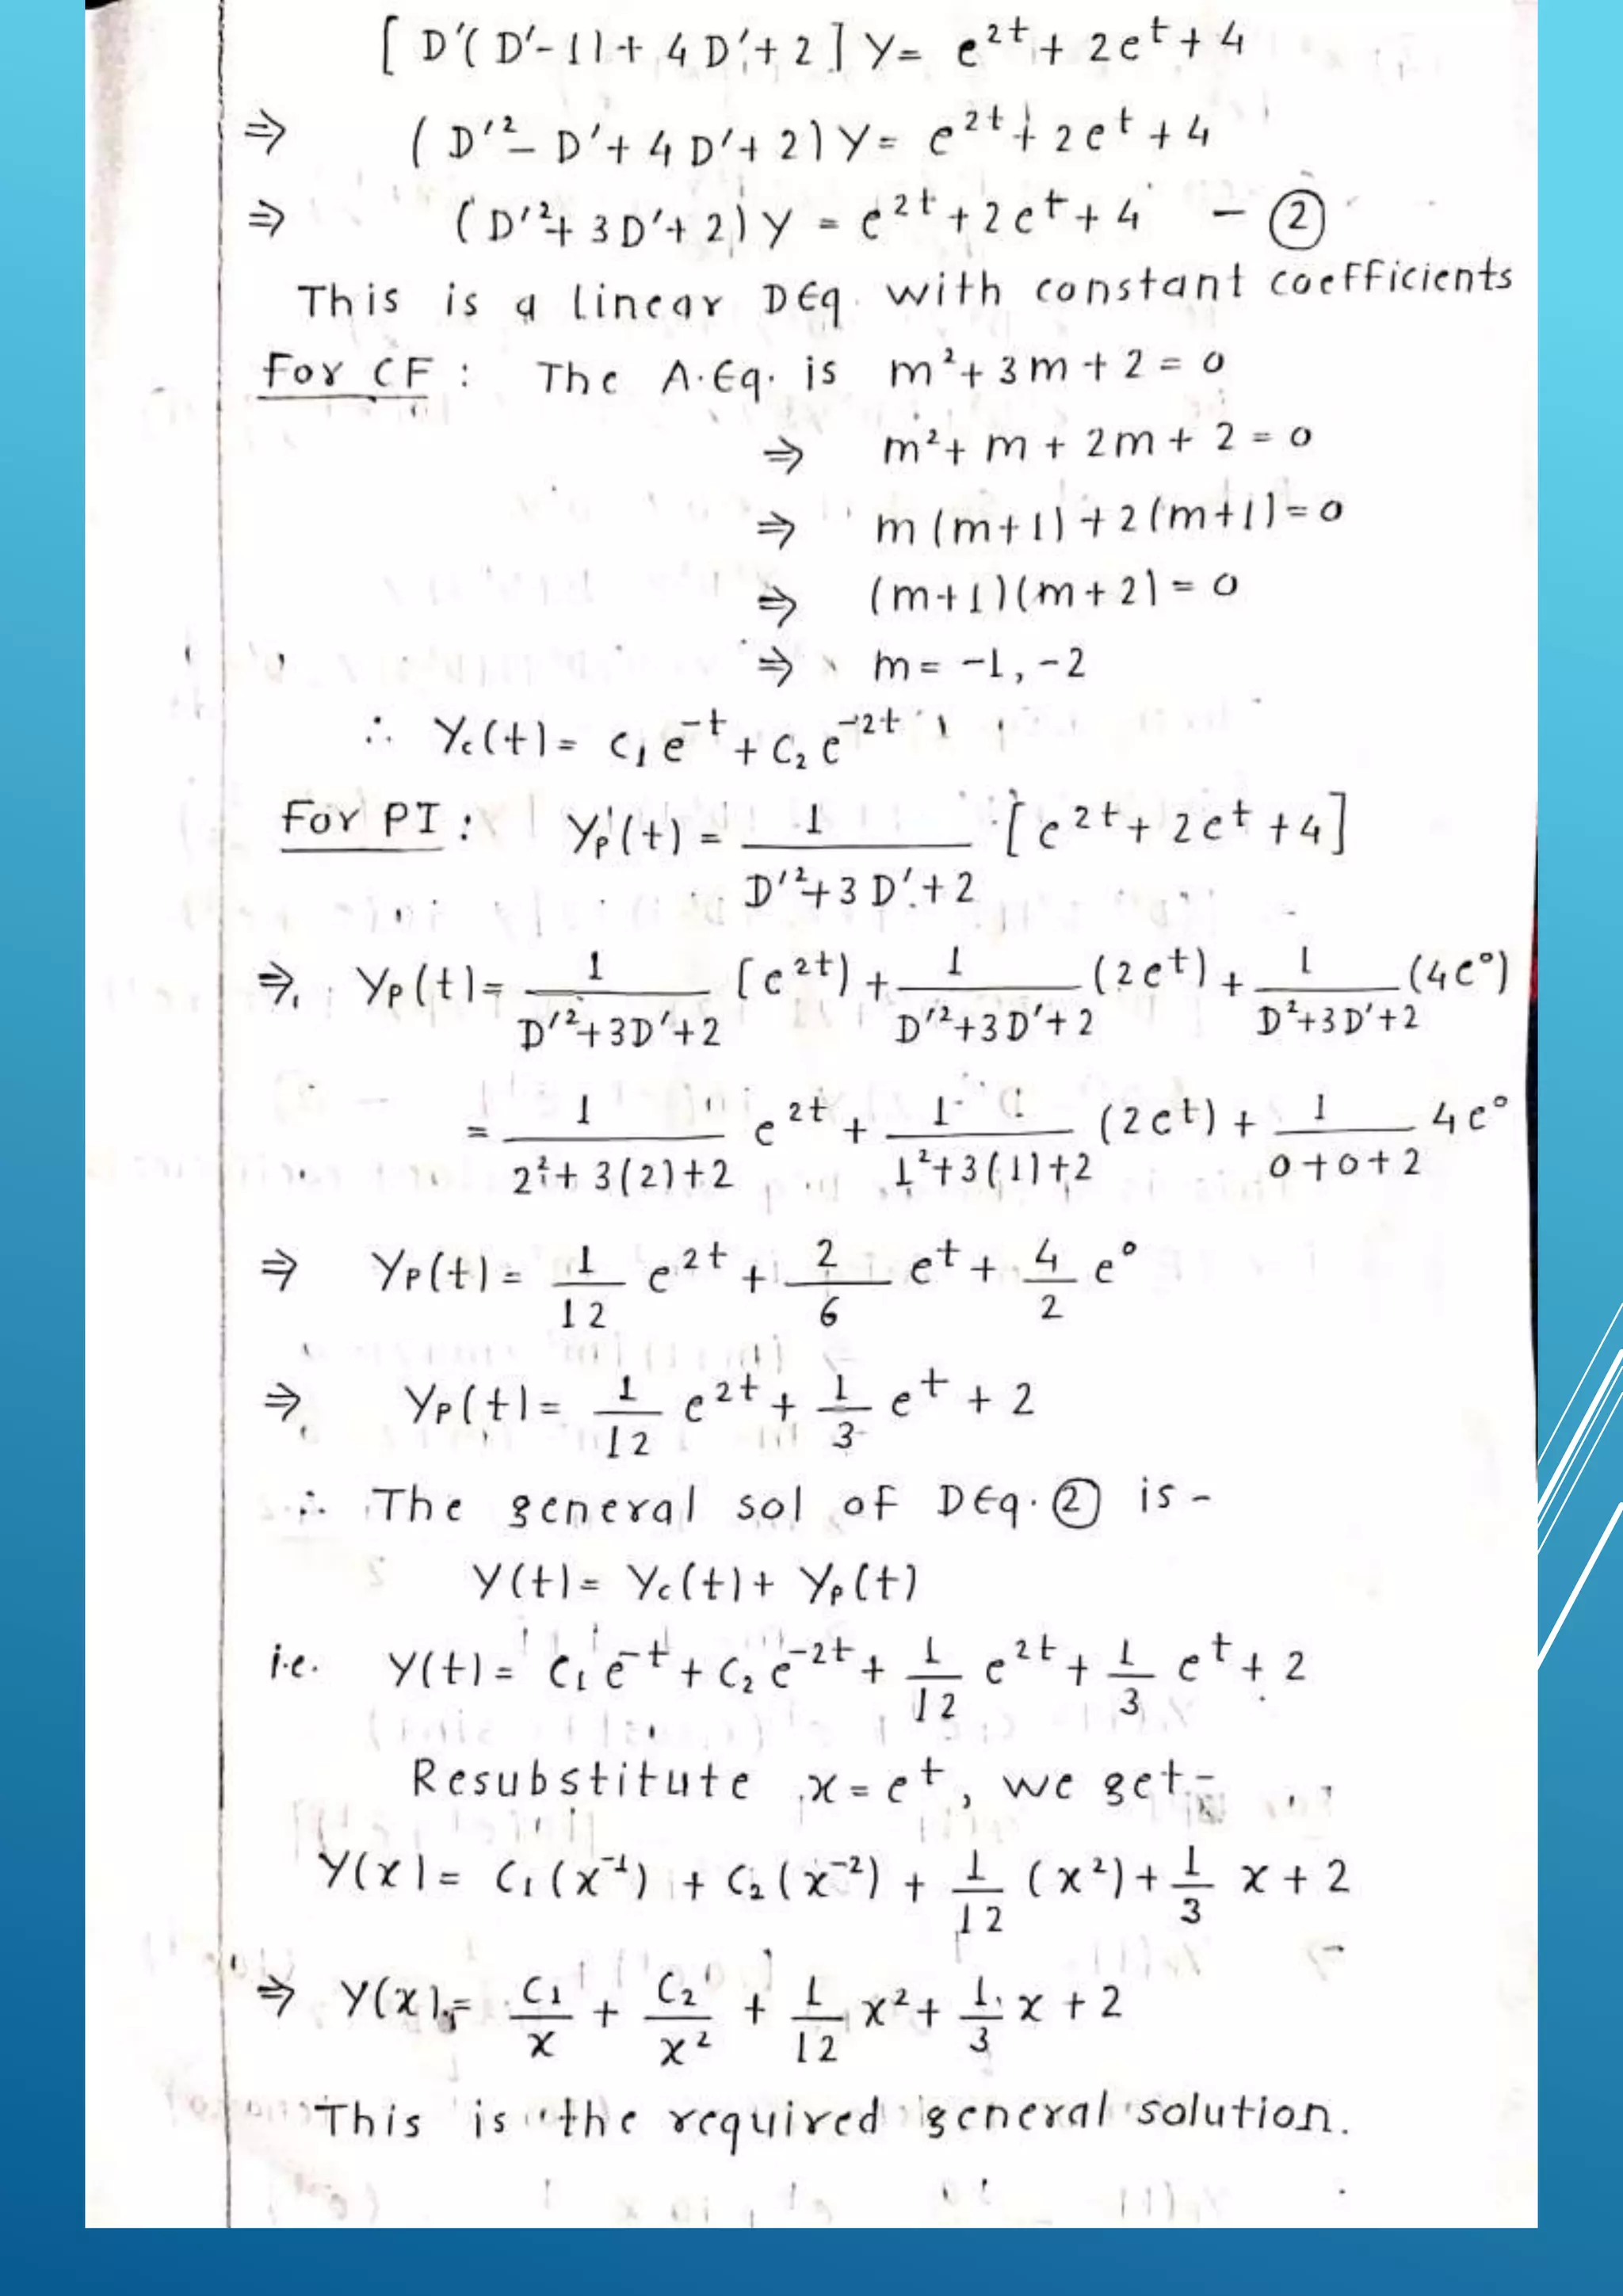 [ D'( D'-1) + 4 D' + 2 ] y = e^{2t} + 2e^t + 4
⇒ ( D'² - D' + 4 D' + 2) y = e^{2t} + 2e^t + 4
⇒ ( D'² + 3 D' + 2) y = e^{2t} + 2e^t + 4 - ②
This is a linear DEq. with constant coefficients
For CF : The A.Eq. is m² + 3m + 2 = 0
⇒ m² + m + 2m + 2 = 0
⇒ m (m+1) + 2(m+1) = 0
⇒ (m+1)(m+2) = 0
⇒ m = -1, -2
∴ Yc(t) = C₁ e^{-t} + C₂ e^{-2t}
For PI : Yp(t) = 1/(D'² + 3 D' + 2) [e^{2t} + 2e^t + 4]
⇒ Yp(t) = 1/(D'² + 3D' + 2) (e^{2t}) + 1/(D'² + 3D' + 2) (2e^t) + 1/(D² + 3D' + 2) (4e°)
= 1/(2² + 3(2) + 2) e^{2t} + 1/(1² + 3(1) + 2) (2e^t) + 1/(0 + 0 + 2) 4e°
⇒ Yp(t) = 1/12 e^{2t} + 2/6 e^t + 4/2 e°
⇒ Yp(t) = 1/12 e^{2t} + 1/3 e^t + 2
∴ The general sol of DEq. ② is -
y(t) = Yc(t) + Yp(t)
i.e. y(t) = C₁ e^{-t} + C₂ e^{-2t} + 1/12 e^{2t} + 1/3 e^t + 2
Resubstitute x = e^t, we get -
y(x) = C₁(x^{-1}) + C₂(x^{-2}) + 1/12 (x²) + 1/3 x + 2
⇒ y(x) = C₁/x + C₂/x² + 1/12 x² + 1/3 x + 2
This is the required general solution.